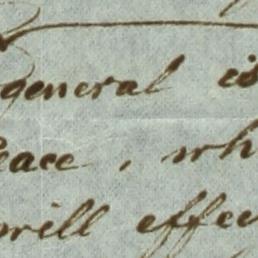 general is
eace, wh
will effec